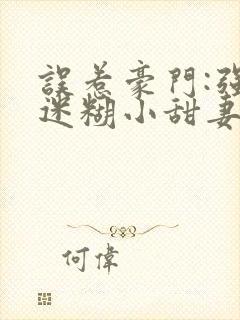 誤惹豪門:強
迷糊小甜妻
何偉